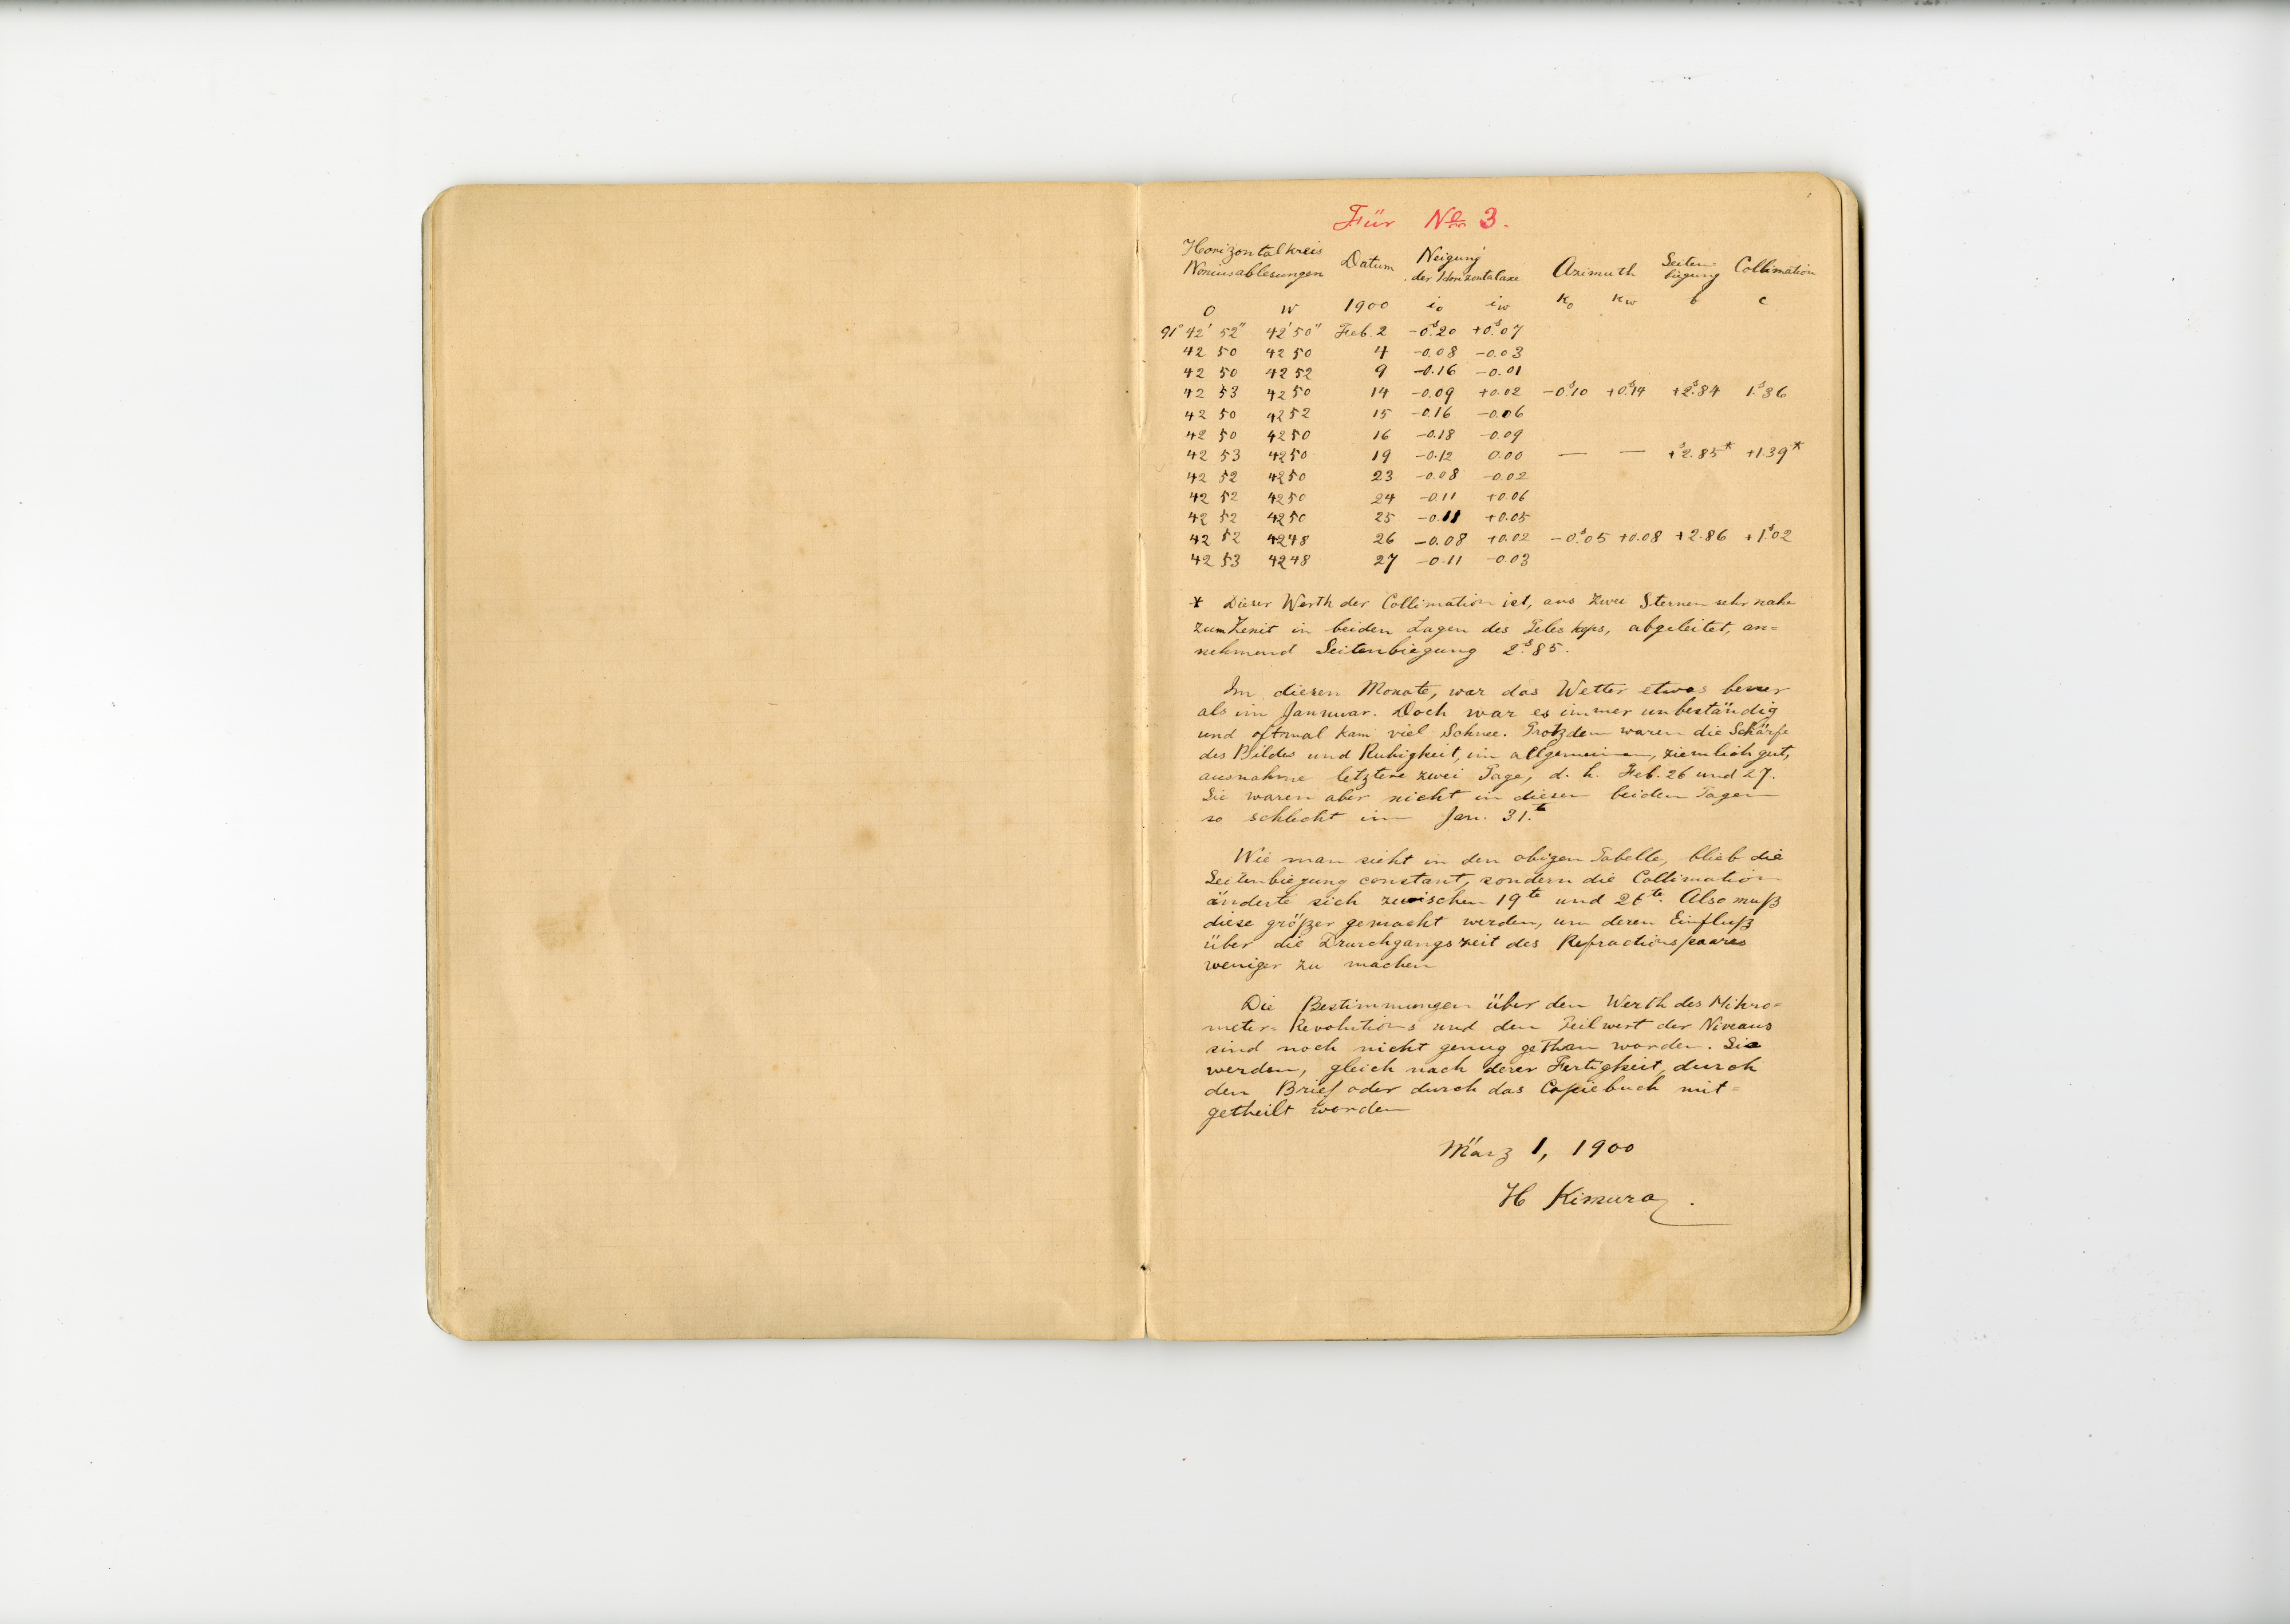 Für No 3.
Horizontalkreis Noniusablesungen Datum Neigung der Horizontalaxe Azimuth Seitenbiegung Collimation
O W 1900 io iw ko kw b c
91° 42' 52" 42' 50" Feb. 2 -0.s20 +0.s07
42 50 42 50 4 -0.08 -0.03
42 50 42 52 9 -0.16 -0.01
42 53 42 50 14 -0.09 +0.02 -0.s10 +0.s14 +2.s84 1.s36
42 50 42 52 15 -0.16 -0.06
42 50 42 50 16 -0.18 -0.09
42 53 42 50 19 -0.12 0.00 — — +2.s85* +1.39*
42 52 42 50 23 -0.08 -0.02
42 52 42 50 24 -0.11 +0.06
42 52 42 50 25 -0.11 +0.05
42 52 42 48 26 -0.08 +0.02 -0.s05 +0.08 +2.86 +1.s02
42 53 42 48 27 -0.11 -0.03
* Dieser Werth der Collimation ist, aus zwei Sternen sehr nahe
zum Zenit in beiden Lagen des Teleskops, abgeleitet, an=
nehmend Seitenbiegung 2.s85.
Im diesen Monate, war das Wetter etwas besser
als im Jannuar. Doch war es immer unbeständig
und oftmal kam viel Schnee. Trotzdem waren die Schärfe
des Bildes und Ruhigkeit, im allgemeinen, ziemlich gut,
ausnahme letztere zwei Tage, d. h. Feb. 26 und 27.
Sie waren aber nicht in diesen beiden Tagen
so schlecht im Jan. 31.te
Wie man sieht in den obigen Tabelle, blieb die
Seitenbiegung constant, sondern die Collimation
änderte sich zwischen 19te und 26te. Also muß
diese größer gemacht werden, um deren Einfluß
über die Drurchgangszeit des Refractionspaares
weniger zu machen
Die Bestimmungen über den Werth des Mikro=
meter-Revolutions und den Teilwert der Niveaus
sind noch nicht genug gethan worden. Sie
werden, gleich nach derer Fertigkeit, durch
den Brief oder durch das Copiebuch mit=
getheilt werden
März 1, 1900
H Kimura.